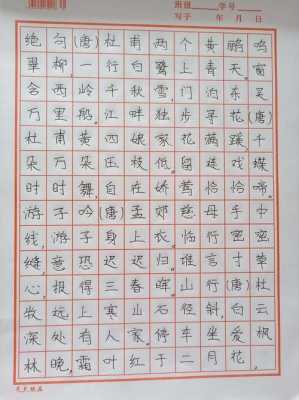 班级 学号
写于 年 月 日
绝句(唐)杜甫两个黄鹂鸣
翠柳,一行白鹭上青天。窗
含西岭千秋雪,门泊东吴
万里船。江畔独步寻花(唐)
杜甫黄四娘家花满蹊千
朵万朵压枝低。留连戏蝶
时时舞,自在娇莺恰恰啼。
游子吟(唐)孟郊慈母手中
线,游子身上衣。临行密密
缝,意恐迟迟归。谁言寸草
心,报得三春晖。山行(唐)杜
牧远上寒山石径斜,白云
深处有人家。停车坐爱枫
林晚,霜叶红于二月花。